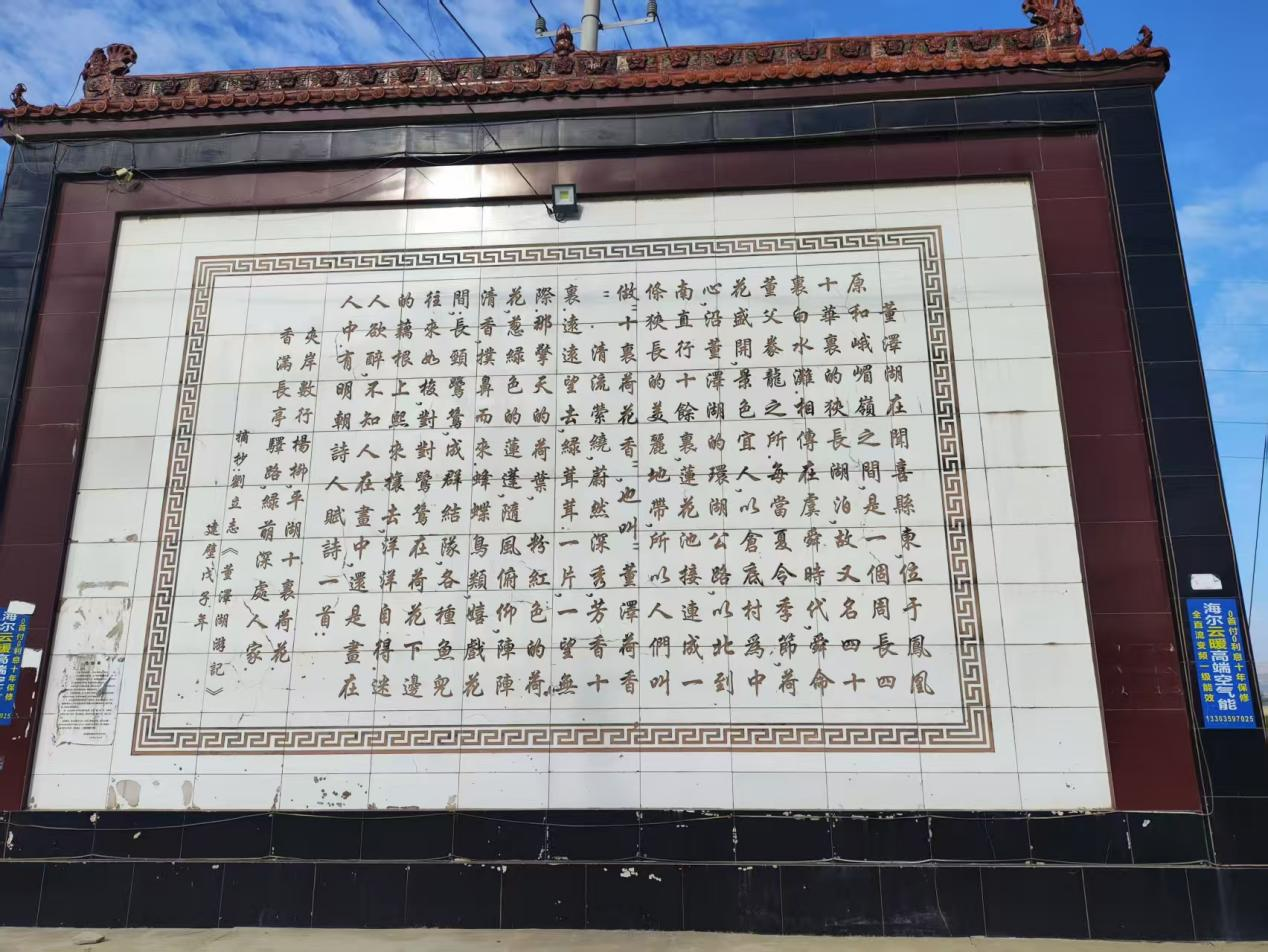 董澤湖在聞喜縣東位于鳳凰
原和峨嵋嶺之間,是一個周長四
十華裏的狹長湖泊,故又名四十
裏白水灘,相傳在虞舜時代舜命
董父豢龍之所,每當夏令季節,荷
花盛開,景色宜人,以倉底村爲中
心,沿董澤湖的環湖公路,以北到
南直行十餘裏,蓮花池接連成一
條狹長的美麗地帶,所以人們叫
做"十裏荷花香",也叫"董澤荷香
"。清流縈繞,蔚然深秀,芳香十
裏,遠遠望去,綠茸茸一片,一望無
際,那擎天的荷葉,粉紅色的荷
花,葱綠色的蓮蓬,隨風俯仰,陣陣
清香撲鼻而來,蜂蝶鳥類嬉戲花
間,長頸鷺鴛成群結隊,各種魚兒
往來如梭,對對鷺鴛在荷花下邊
的藕根上熙來攘去,洋洋自得,迷
人欲醉,不知人在畫中,還是畫在
人中,有明朝詩人賦詩一首:
夾岸數行楊柳,平湖十裏荷花
香滿長亭驛路,綠萌深處人家
摘抄:劉立志《董澤湖游記》
建壁戊子年
0首付0利息十年保修
海尔云暖高端空气能
全直流变频一级能效
13303597025
0首付0利息十年保修
海尔云暖高端